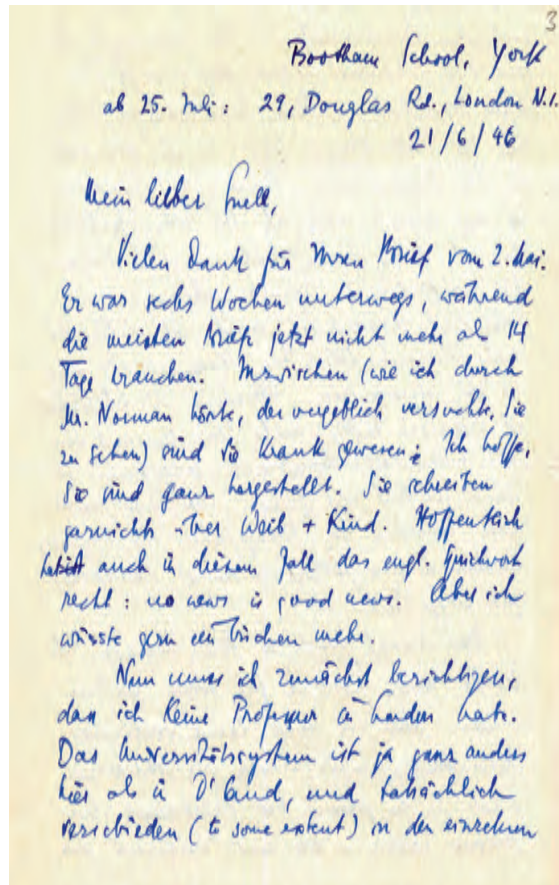 3
Bootham School, York
ab 25. Juli: 29, Douglas Rd., London N.1.
21/6/46
Mein lieber Snell,
Vielen Dank für Ihren Brief vom 2. Mai.
Er war sechs Wochen unterwegs, während
die meisten Briefe jetzt nicht mehr als 14
Tage brauchen. Inzwischen (wie ich durch
Mr. Norman hörte, der vergeblich versuchte, Sie
zu sehen) sind Sie krank gewesen; Ich hoffe,
Sie sind ganz hergestellt. Sie schreiben
garnichts über Weib + Kind. Hoffentlich
auch in diesem Fall das engl. Sprichwort
recht: no news is good news. Aber ich
wüsste gern ein bischen mehr.
Nun muss ich zunächst berichtigen,
dass ich keine Professur in London habe.
Das Universitätssystem ist ja ganz anders
hier als in D'land, und tatsächlich
verschieden (to some extent) in den einzelnen